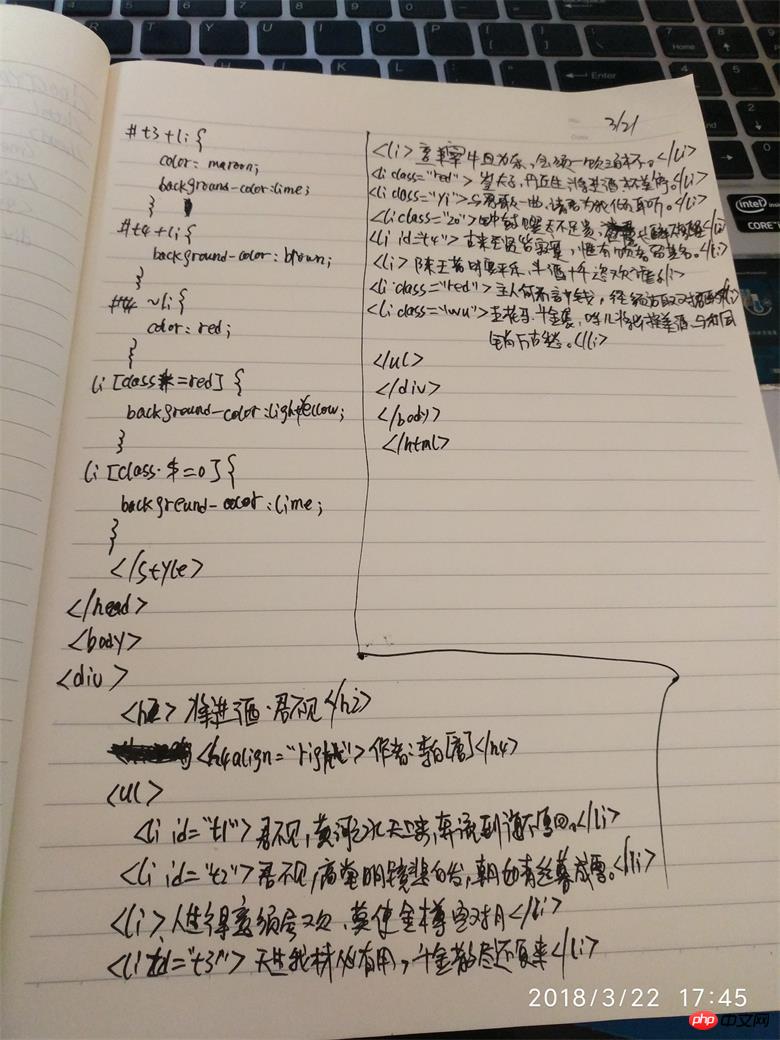 3/21
#t3+li {
color: maroon;
background-color:lime;
}
#t4+li {
background-color: brown;
}
#t4 ~li {
color: red;
}
li [class*=red] {
background-color:lightyellow;
}
li [class $=o] {
background-color:lime;
}
</style>
</head>
<body>
<div>
<h2>将进酒·君不见</h2>
<h4align="right">作者:李白[唐]</h4>
<ul>
<li id="t1">君不见,黄河之水天上来,奔流到海不复回。</li>
<li id="t2">君不见,高堂明镜悲白发,朝如青丝暮成雪。</li>
<li>人生得意须尽欢,莫使金樽空对月</li>
<li id="t3">天生我材必有用,千金散尽还复来</li>
<li>宰牛且为乐,会须一饮三百杯。</li>
<li class="red">岑夫子,丹丘生,将进酒,杯莫停。</li>
<li class="yi">与君歌一曲,请君为我倾耳听。</li>
<li class="zo">钟鼓馔玉不足贵,</li>
<li id="t4">古来圣贤皆寂寞,惟有饮者留其名。</li>
<li>陈王昔时宴平乐,斗酒十千恣欢谑</li>
<li class="red">主人何为言少钱,径须沽取对君酌</li>
<li class="wu">五花马,千金裘,呼儿将出换美酒,与尔同
销万古愁。</li>
</ul>
</div>
</body>
</html>
Home
Enter
intel
CORE
2018/3/22 17:45
php中文网